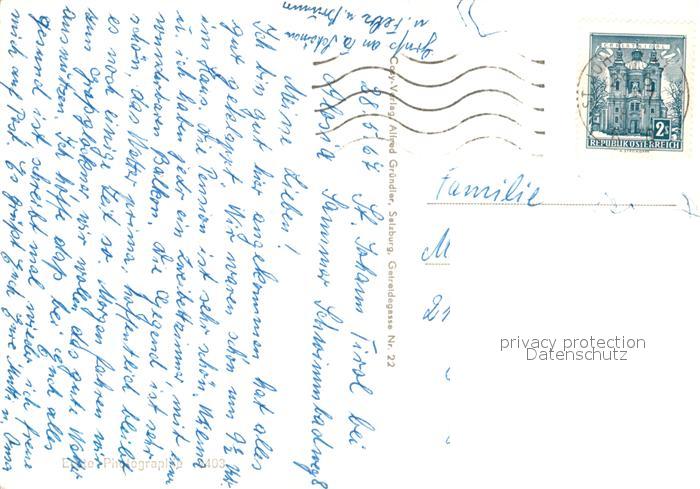 28.8.67 St. Johann Tirol bei
Maria Sammer Schwimmbadweg 8
Meine Lieben!
Ich bin gut hier angekommen hat alles
gut geklappt. Wir waren schon um 9½ Uhr
im Haus die Pension ist sehr schön. Helma
u. ich haben jeder ein Zweibettzimmer mit
wunderbaren Balkon, die Gegend ist sehr
schön, das Wetter prima, hoffentlich bleibt
es noch einige Zeit so. Morgen fahren wir
zum Großglockner wir wollen das gute Wetter
ausnützen. Ich hoffe das bei Euch alles
gesund ist schreibt mal wieder ich freue
mich auf Post. Es grüßt Euch Eure Mutter u. Oma
Gruß an
u. Felz u.
Cosy-Verlag, Alfred Gründler, Salzburg, Getreidegasse Nr. 22
Echte Photographie 403
CHRISTKINDL
2 S
REPUBLIK ÖSTERREICH
Familie
M
21
privacy protection
Datenschutz